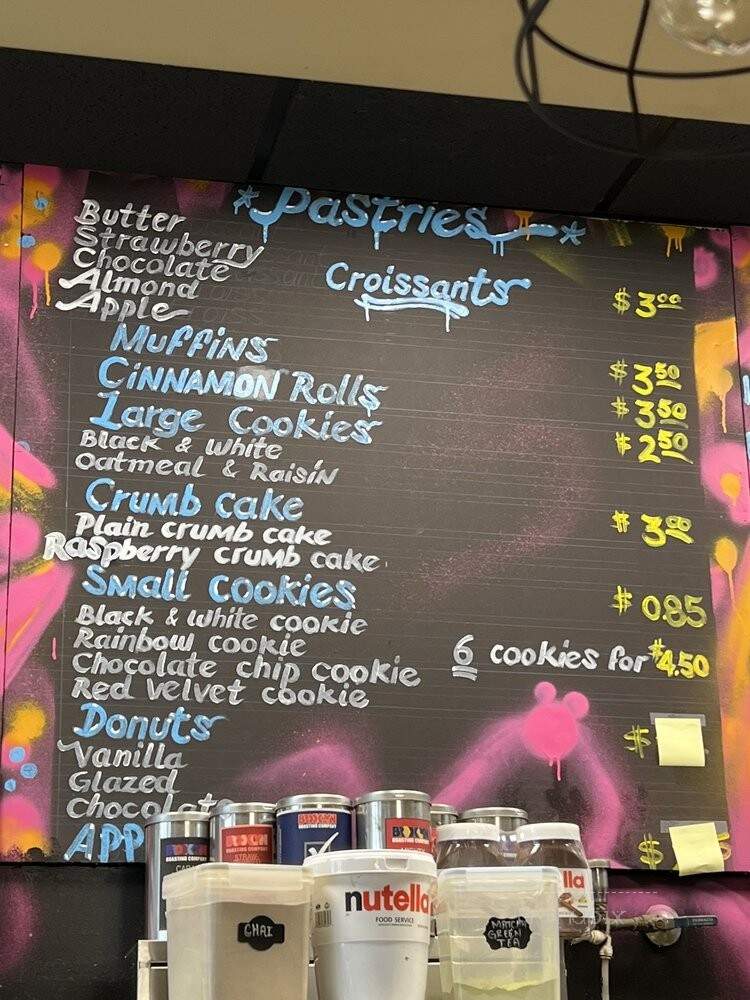 *Pastries*
Butter
Strawberry
Chocolate
Almond
Apple
Croissants $ 3.00
Muffins $ 3.50
Cinnamon Rolls $ 3.50
Large Cookies $ 2.50
Black & White
Oatmeal & Raisin
Crumb cake $ 3.00
Plain crumb cake
Raspberry crumb cake
Small Cookies $ 0.85
Black & White cookie
Rainbow cookie
Chocolate chip cookie
6 cookies for $4.50
Red Velvet cookie
Donuts $
Vanilla
Glazed
Chocolat
APP $
ROASTING COMPANY
ROASTING COMPANY
ROASTING COMPANY
ROASTING COMPANY
nutella
FOOD SERVICE
lla
CHAI
MATCHA
GREEN
TEA